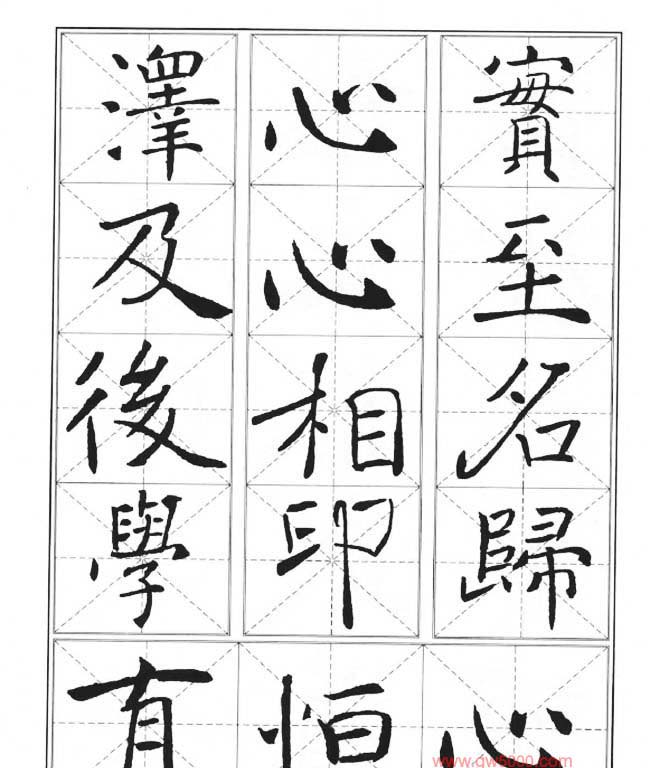 實至名歸
心心相印
澤及後學
心
怕
有
www.qw5000.com